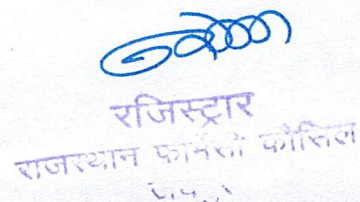 रजिस्ट्रार
राजस्थान फार्मेसी कौंसिल